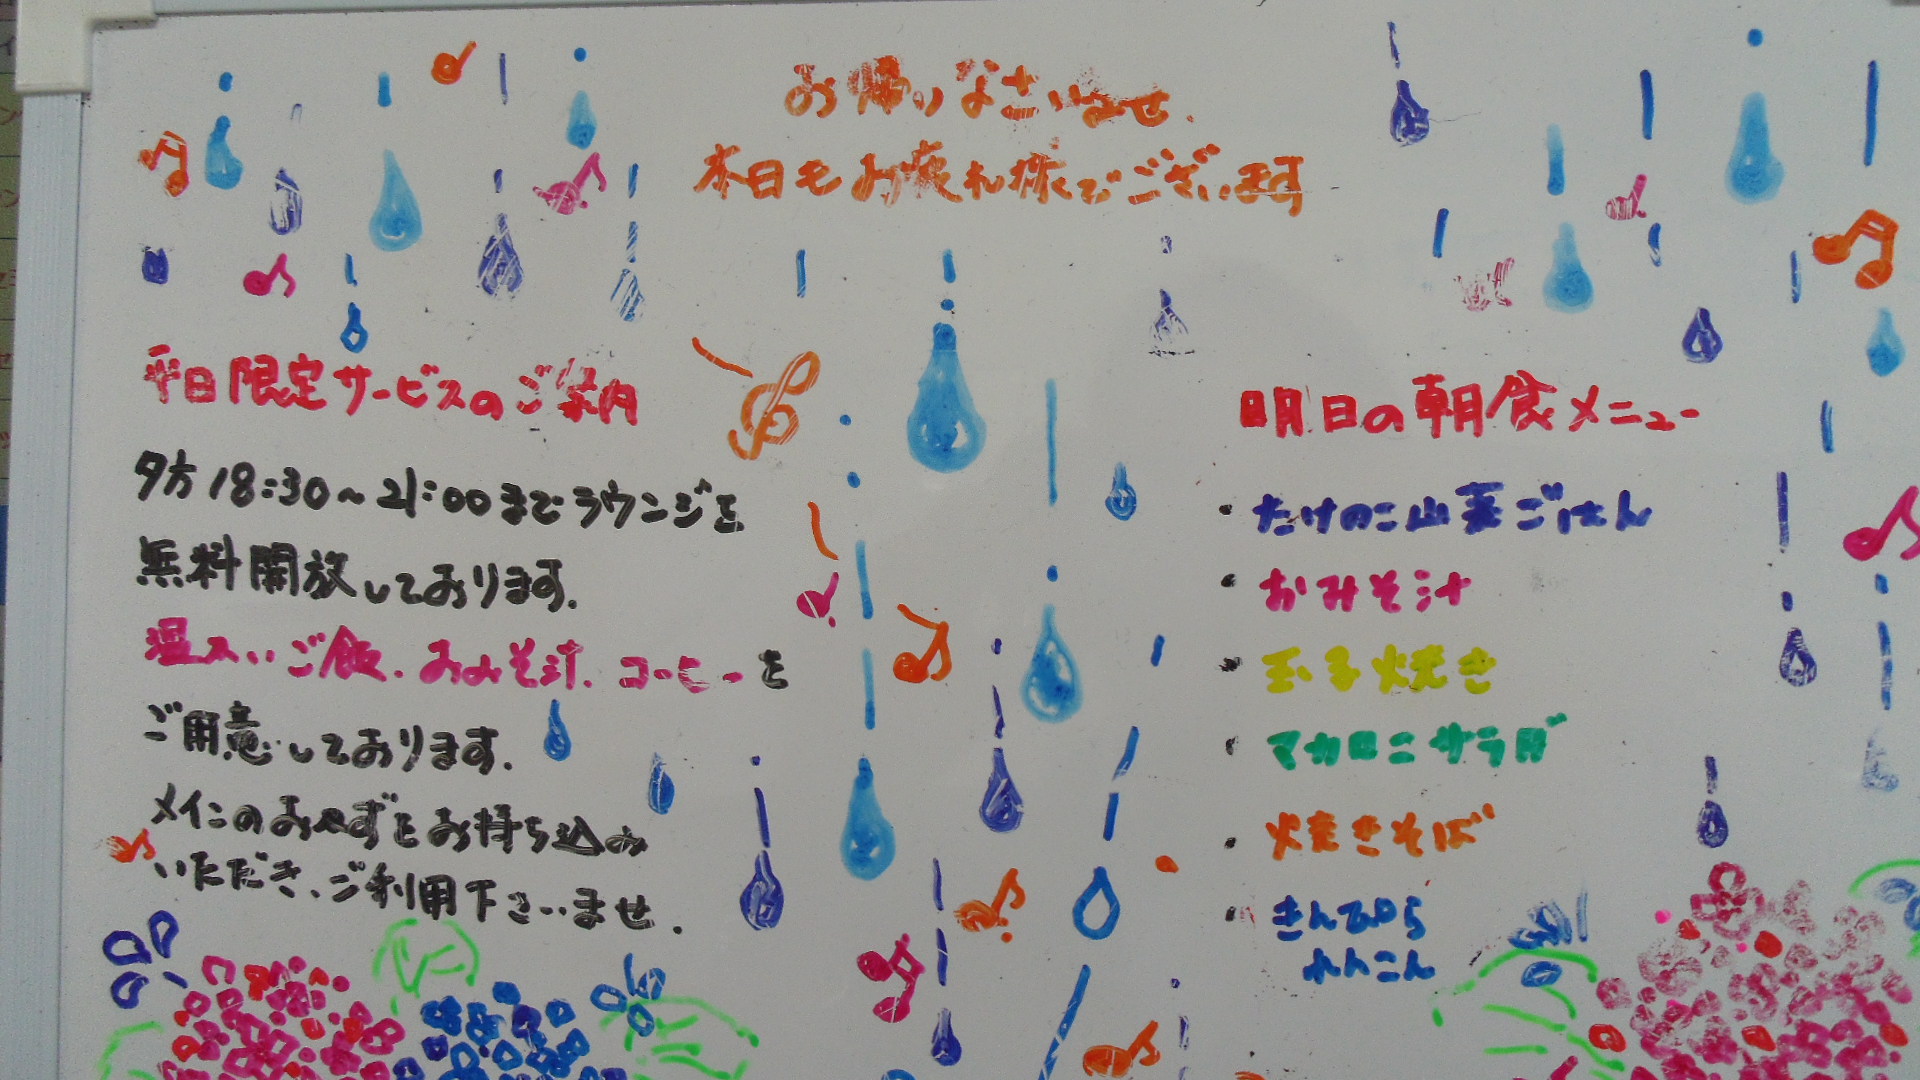 お帰りなさいませ.
本日もお疲れ様でございます
平日限定サービスのご案内
夕方18:30~21:00までラウンジを
無料開放しております.
温かいご飯.おみそ汁.コーヒーを
ご用意しております.
メインのおかずをお持ち込み
いただき、ご利用下さいませ.
明日の朝食メニュー
・たけのこ山菜ごはん
・おみそ汁
・玉子焼き
・マカロニサラダ
・焼きそば
・きんぴら
れんこん